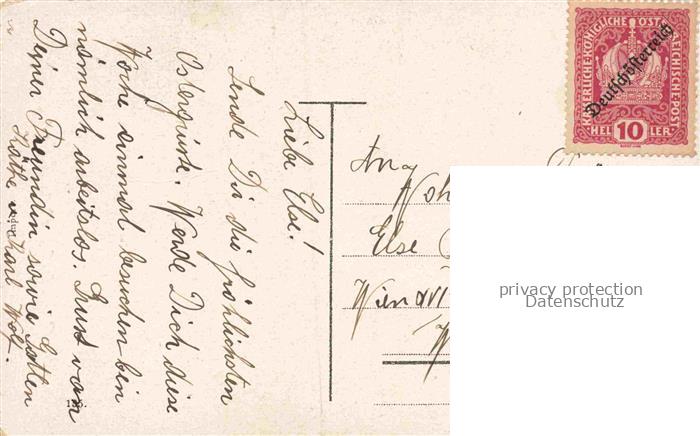 Liebe Else!
Sende Dir die fröhlichsten
Ostergrüße. Werde Dich diese
Woche einmal besuchen bin
nämlich arbeitslos. Gruß von
Deiner Freundin sowie Gatten
Käthe u. Karl Wolf.
An
Woh
Else
Wien XVI
W
KAISERLICHE KÖNIGLICHE ÖSTERREICHISCHE POST
Deutschösterreich
HELLER
10
privacy protection
Datenschutz